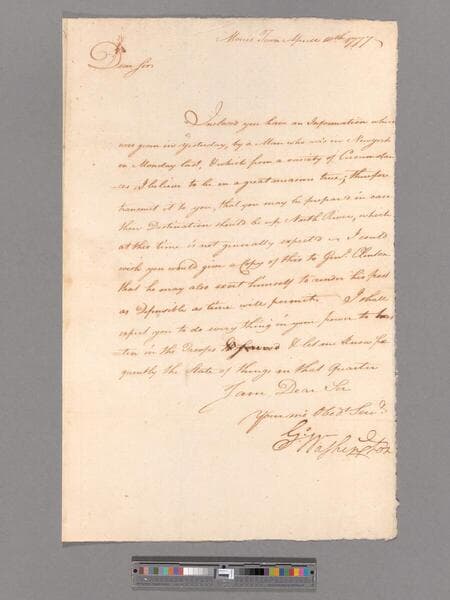 Morris Town Aprill 10th 1777
Dear Sir
Inclosed you have an Information which
was given in yesterday, by a Man who was in New york
on Monday last, & which from a variety of Circumstan-
ces, I believe to be in a great measure true; therefore
transmit it to you, that you may be prepar'd in case
their Destination should be up North River, which
at this time is not generally expected. I could
wish you would give a Copy of this to Genl. Clinton
that he may also exert himself to render his post
as Defensible as time will permit. I shall
expect you to do every thing in your power to has-
ten in the Troops & let me know fre
quently the State of things in that Quarter
I am Dear Sir
Your mo Obedt. Servt.
Go. Washington